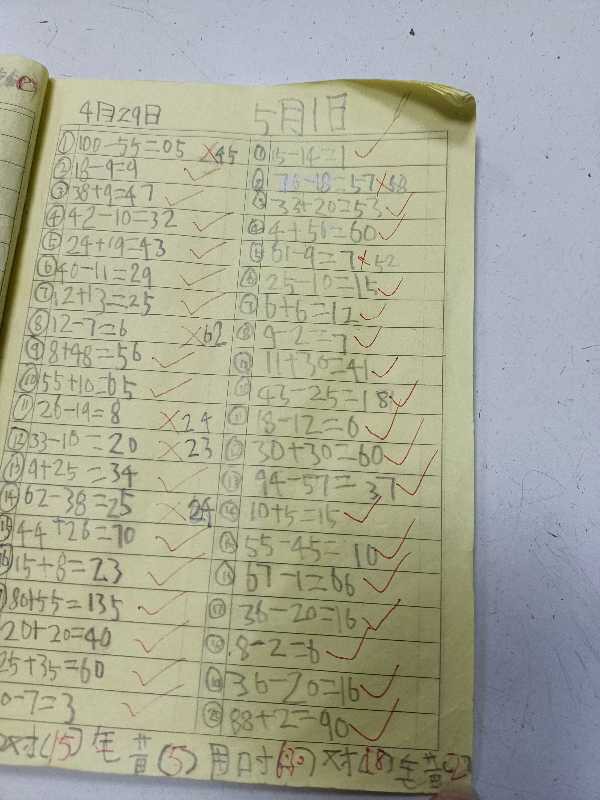 4月29日
① 100-55=05 ×45
② 18-9=9
③ 38+9=47
④ 42-10=32
⑤ 24+19=43
⑥ 40-11=29
⑦ 12+13=25
⑧ 12-7=6 ×62
⑨ 8+48=56
⑩ 55+10=65
⑪ 26-19=8 ×24
⑫ 33-10=20 ×23
⑬ 9+25=34
⑭ 62-38=25 ×24
⑮ 44+26=70
15+8=23
80+55=135
20+20=40
25+35=60
0-7=3
对(15) 错(5)
5月1日
① 15-14=1
② 76-18=57 ×58
③ 33+20=53
④ 4+56=60
⑤ 61-9=7 ×52
⑥ 25-10=15
⑦ 6+6=12
⑧ 9-2=7
11+30=41
43-25=18
18-12=6
30+30=60
⑬ 94-57=37
⑭ 10+5=15
55-45=10
67-1=66
⑰ 36-20=16
8-2=6
36-20=16
⑳ 88+2=90
用时 对(18) 错(2)